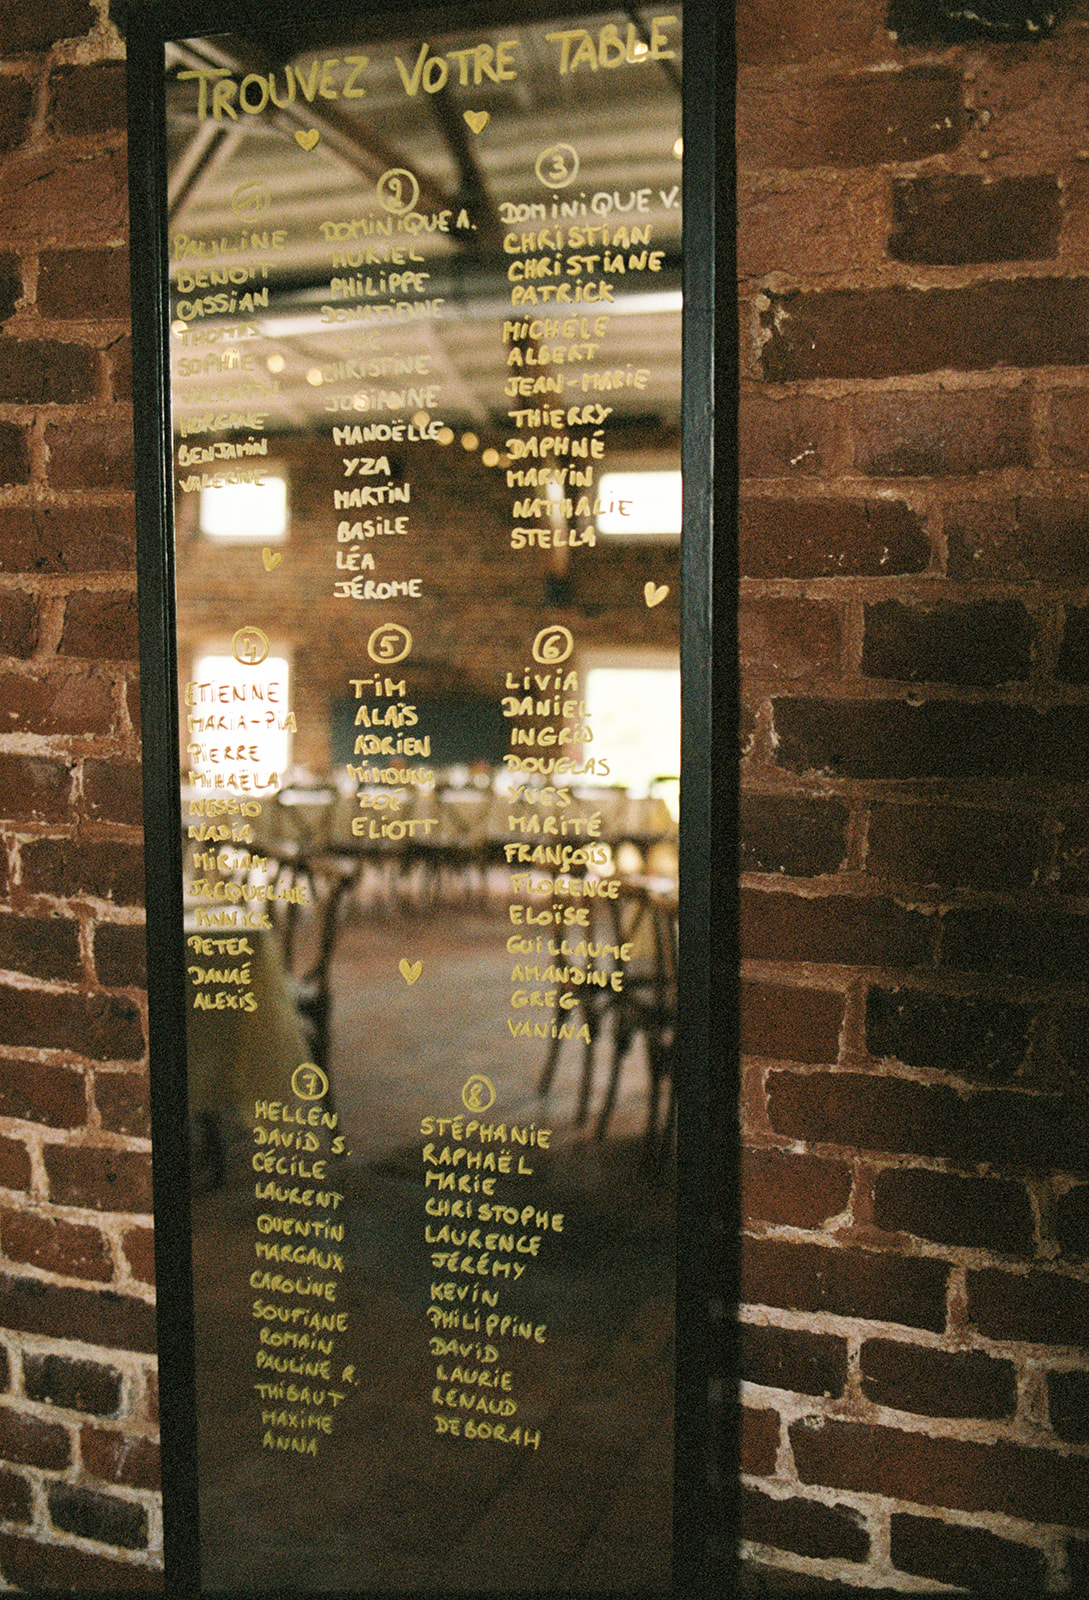 TROUVEZ VOTRE TABLE
1
PAULINE
BENOIT
CASSIAN
THOMAS
SOPHIE
VALENTIN
MORGANE
BENJAMIN
VALERINE
2
DOMINIQUE A.
MURIEL
PHILIPPE
DONATIENNE
CHRISTINE
JOSIANNE
MANOËLLE
YZA
MARTIN
BASILE
LÉA
JÉROME
3
DOMINIQUE V.
CHRISTIAN
CHRISTIANE
PATRICK
MICHÈLE
ALBERT
JEAN-MARIE
THIERRY
DAPHNÉ
MARVIN
NATHALIE
STELLA
4
ETIENNE
MARIA-PIA
PIERRE
MIHAËLA
NESSIO
NADIA
MIRIAM
JACQUELINE
YANNICK
PETER
DANAÉ
ALEXIS
5
TIM
ALAÏS
ADRIEN
MIMOUNA
ZOÉ
ELIOTT
6
LIVIA
DANIEL
INGRID
DOUGLAS
YVES
MARITÉ
FRANÇOIS
FLORENCE
ELOÏSE
GUILLAUME
AMANDINE
GREG
VANINA
7
HELLEN
DAVID S.
CÉCILE
LAURENT
QUENTIN
MARGAUX
CAROLINE
SOUFIANE
ROMAIN
PAULINE R.
THIBAUT
MAXIME
ANNA
8
STÉPHANIE
RAPHAËL
MARIE
CHRISTOPHE
LAURENCE
JÉRÉMY
KEVIN
PHILIPPINE
DAVID
LAURIE
RENAUD
DEBORAH